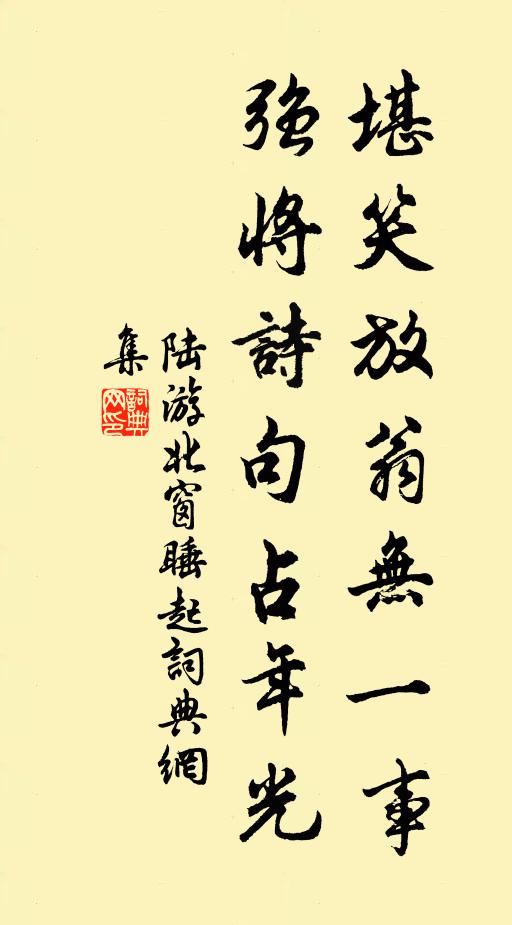 堪笑放翁無一事
強將詩句占年光
陆游北窗睡起詞典網
集
詞典
网印